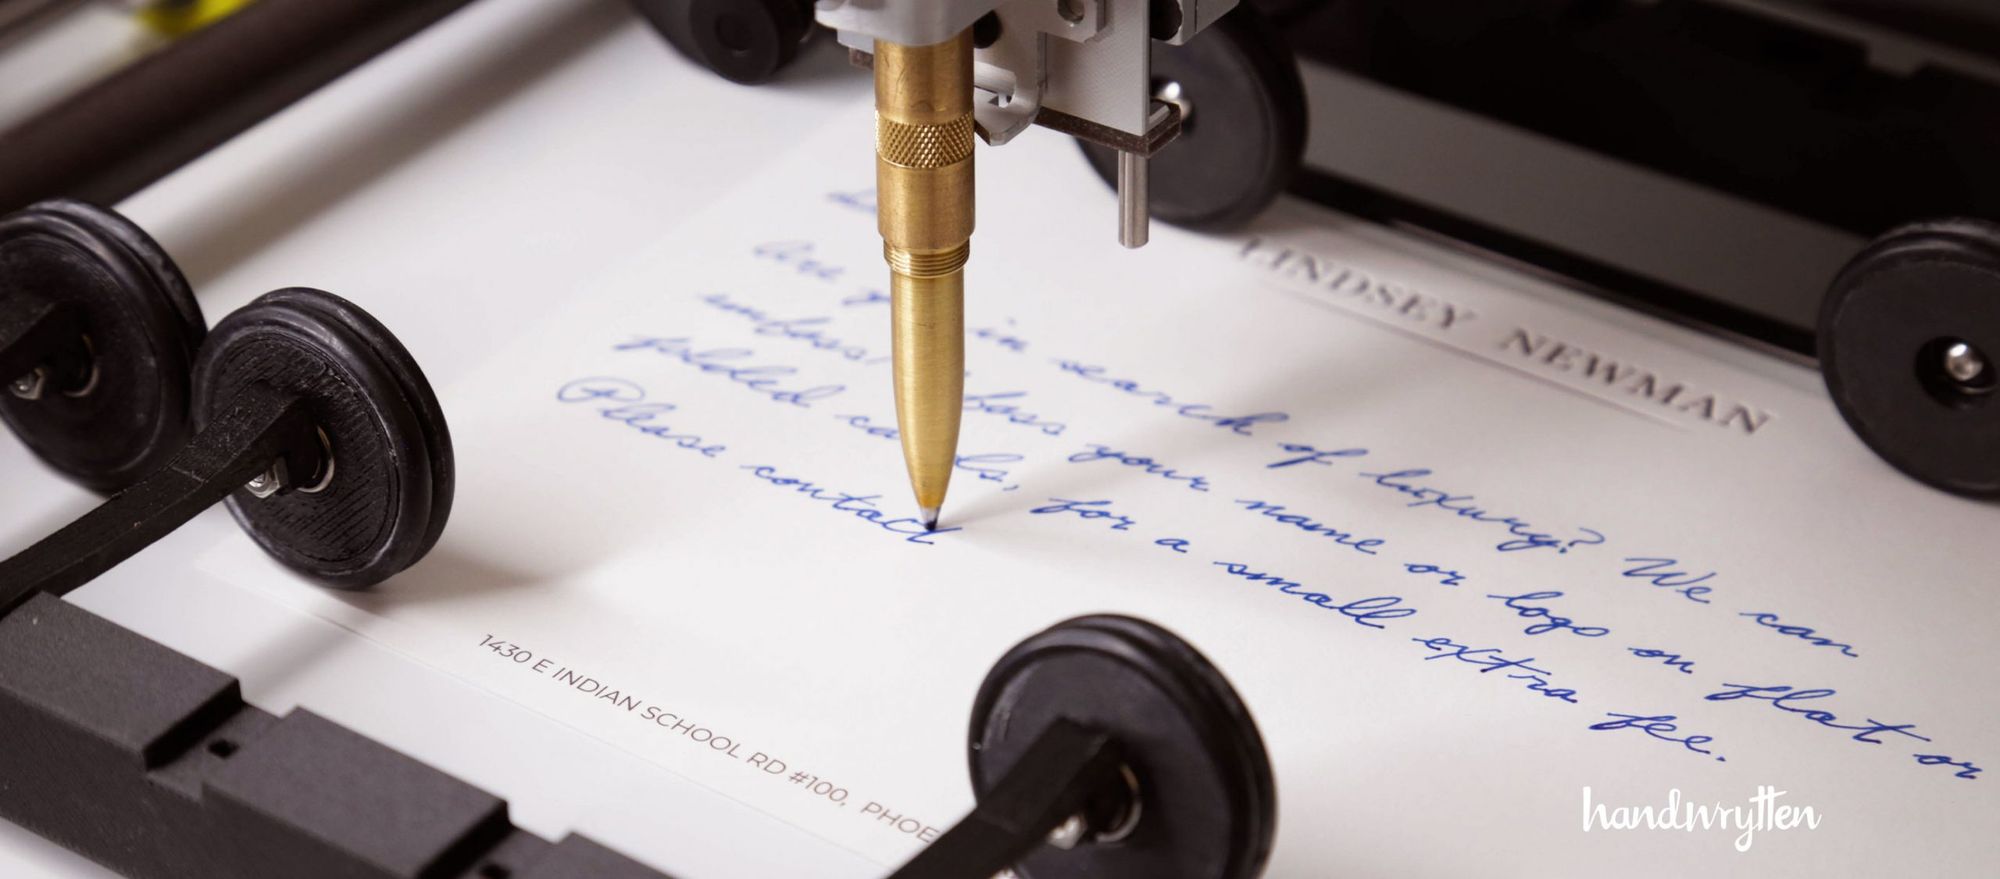 LINDSEY NEWMAN
in search of luxury? We can
your name or logo on flat or
folded for a small extra fee.
Please contact
1430 E INDIAN SCHOOL RD #100, PHOE
handwrytten